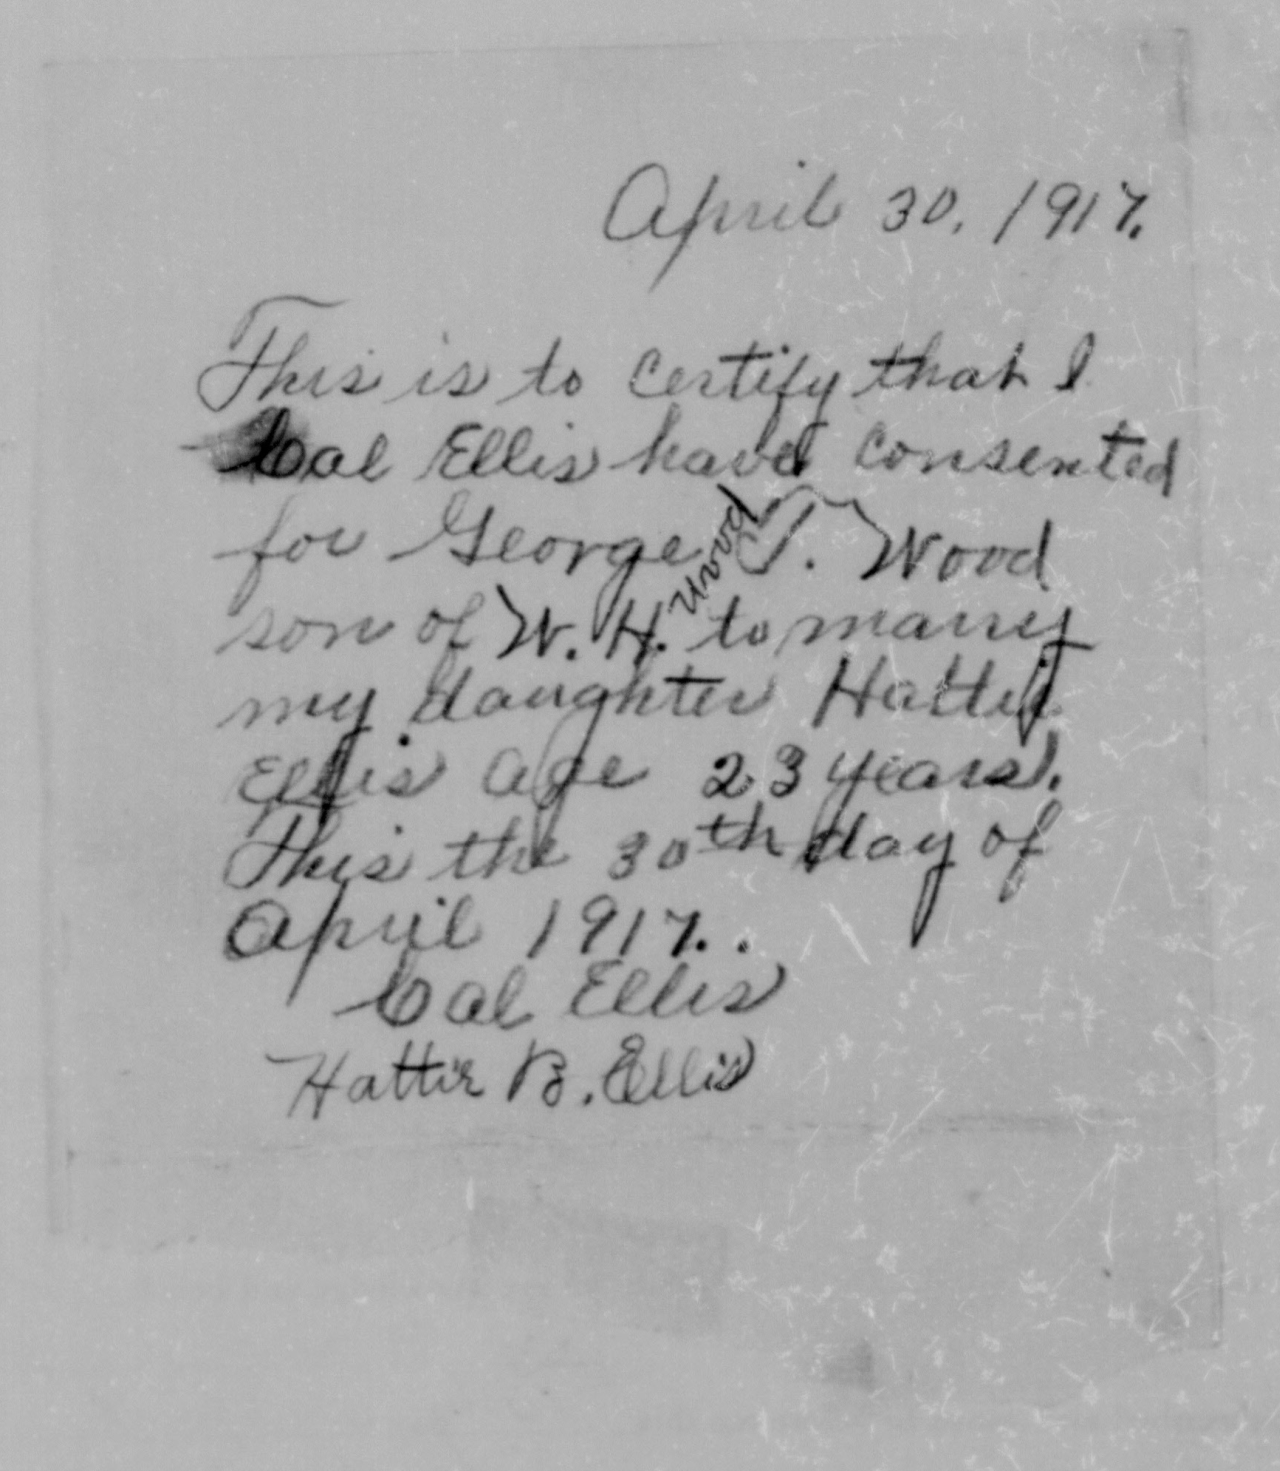 April 30, 1917.
This is to certify that I
Cal Ellis have consented
for George T. Wood
son of W. H. Wood to marry
my daughter Hattie
Ellis age 23 years.
This the 30th day of
April 1917..
Cal Ellis
Hattie B. Ellis